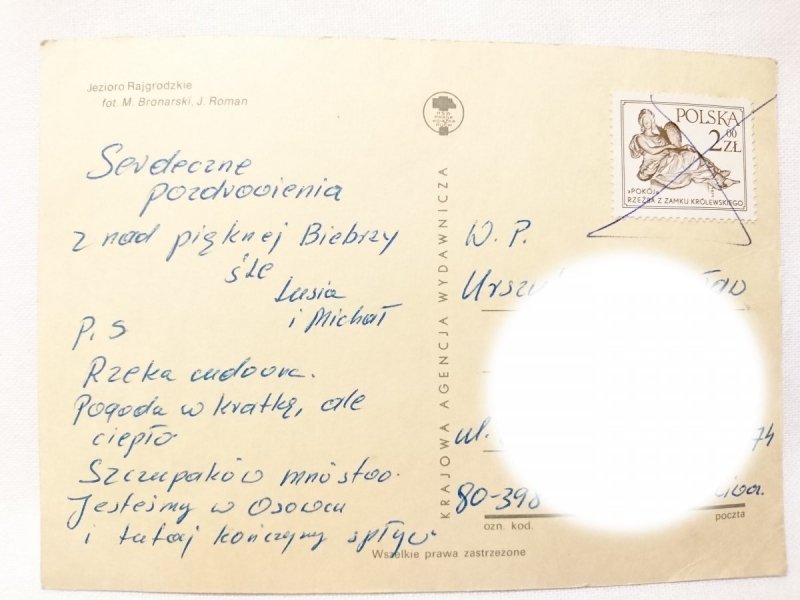 Jezioro Rajgrodzkie
fot. M. Bronarski, J. Roman
Serdeczne
pozdrowienia
z nad pięknej Biebrzy
śle
Lusia
i Michał
P.S
Rzeka cudowna.
Pogoda w kratkę, ale
ciepło
Szczupaków mnóstwo.
Jesteśmy w Osowcu
i tutaj kończymy spływ
KRAJOWA AGENCJA WYDAWNICZA
POLSKA
2 00
ZŁ
»POKÓJ«
RZEŹBA Z ZAMKU KRÓLEWSKIEGO
W. P.
ul.
74
80-398
ozn. kod.
poczta
Wszelkie prawa zastrzeżone